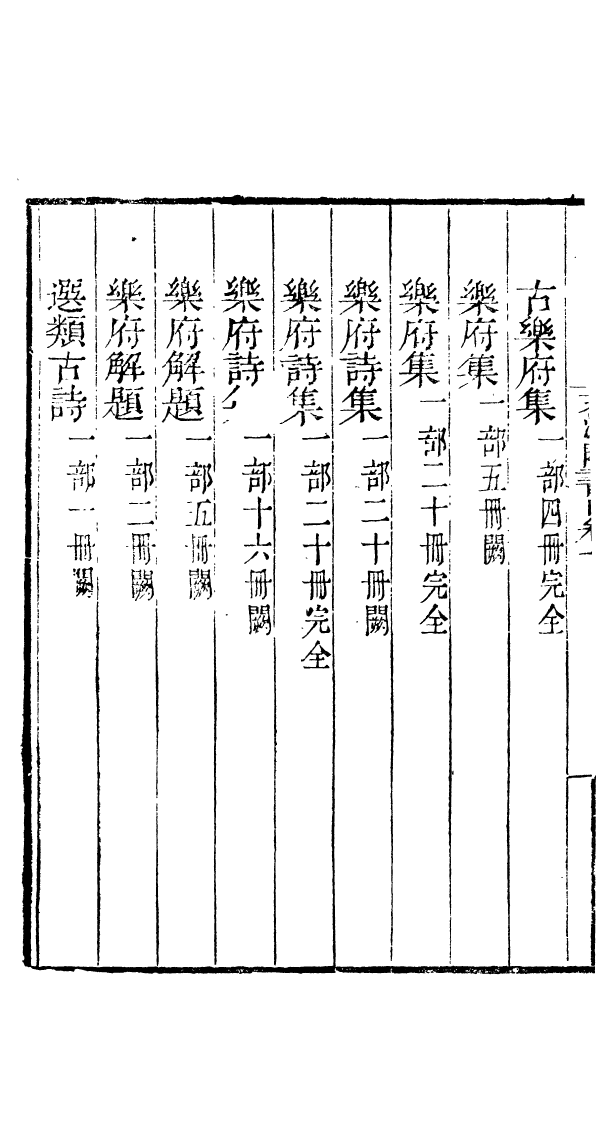 古樂府集一部四冊完全
樂府集一部五冊闕
樂府集一部二十冊完全
樂府詩集一部二十冊闕
樂府詩集一部二十冊完全
樂府詩一部十六冊闕
樂府解題一部五冊闕
樂府解題一部二冊闕
選類古詩一部一冊闕